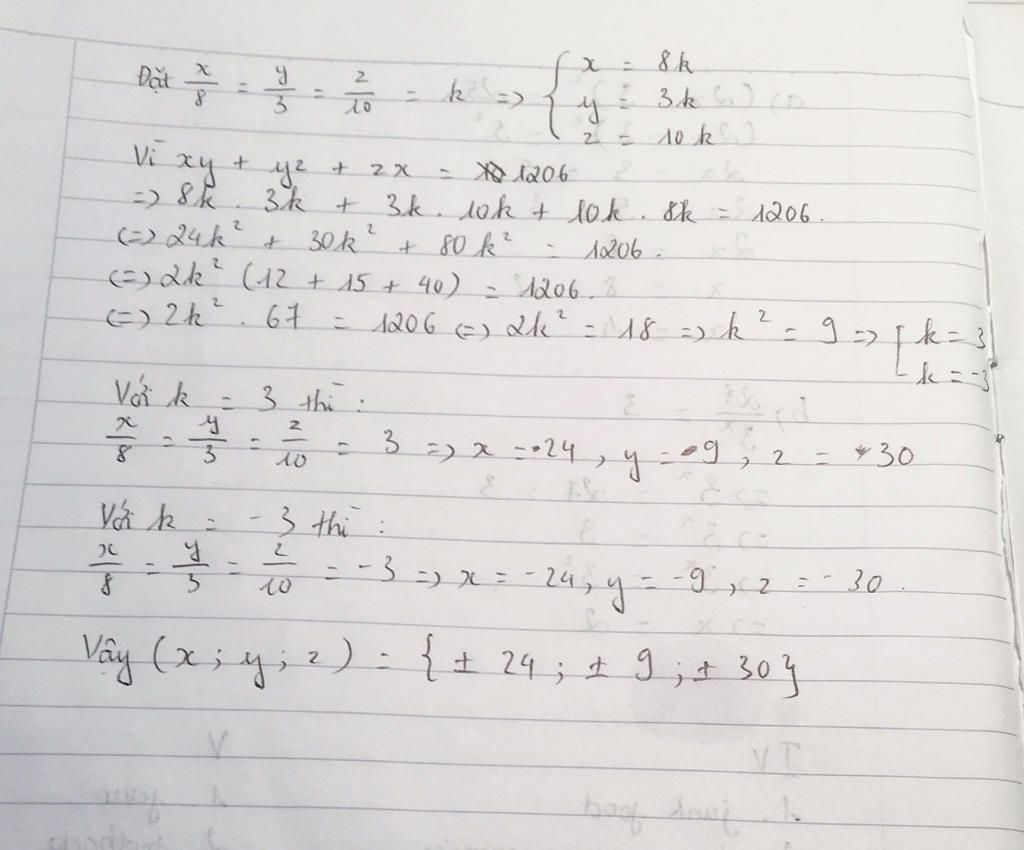 Đặt x/8 = y/3 = z/10 = k => { x = 8k
y = 3k
z = 10k
Vì xy + yz + zx = 1206
=> 8k . 3k + 3k . 10k + 10k . 8k = 1206.
(=) 24k² + 30k² + 80k² = 1206.
(=) 2k² (12 + 15 + 40) = 1206.
(=) 2k² . 67 = 1206 (=) 2k² = 18 => k² = 9 => [ k = 3
k = -3
Với k = 3 thì :
x/8 = y/3 = z/10 = 3 => x = 24, y = 9, z = 30
Với k = -3 thì :
x/8 = y/3 = z/10 = -3 => x = -24, y = -9, z = -30.
Vậy (x ; y ; z) = {± 24 ; ± 9 ; ± 30}